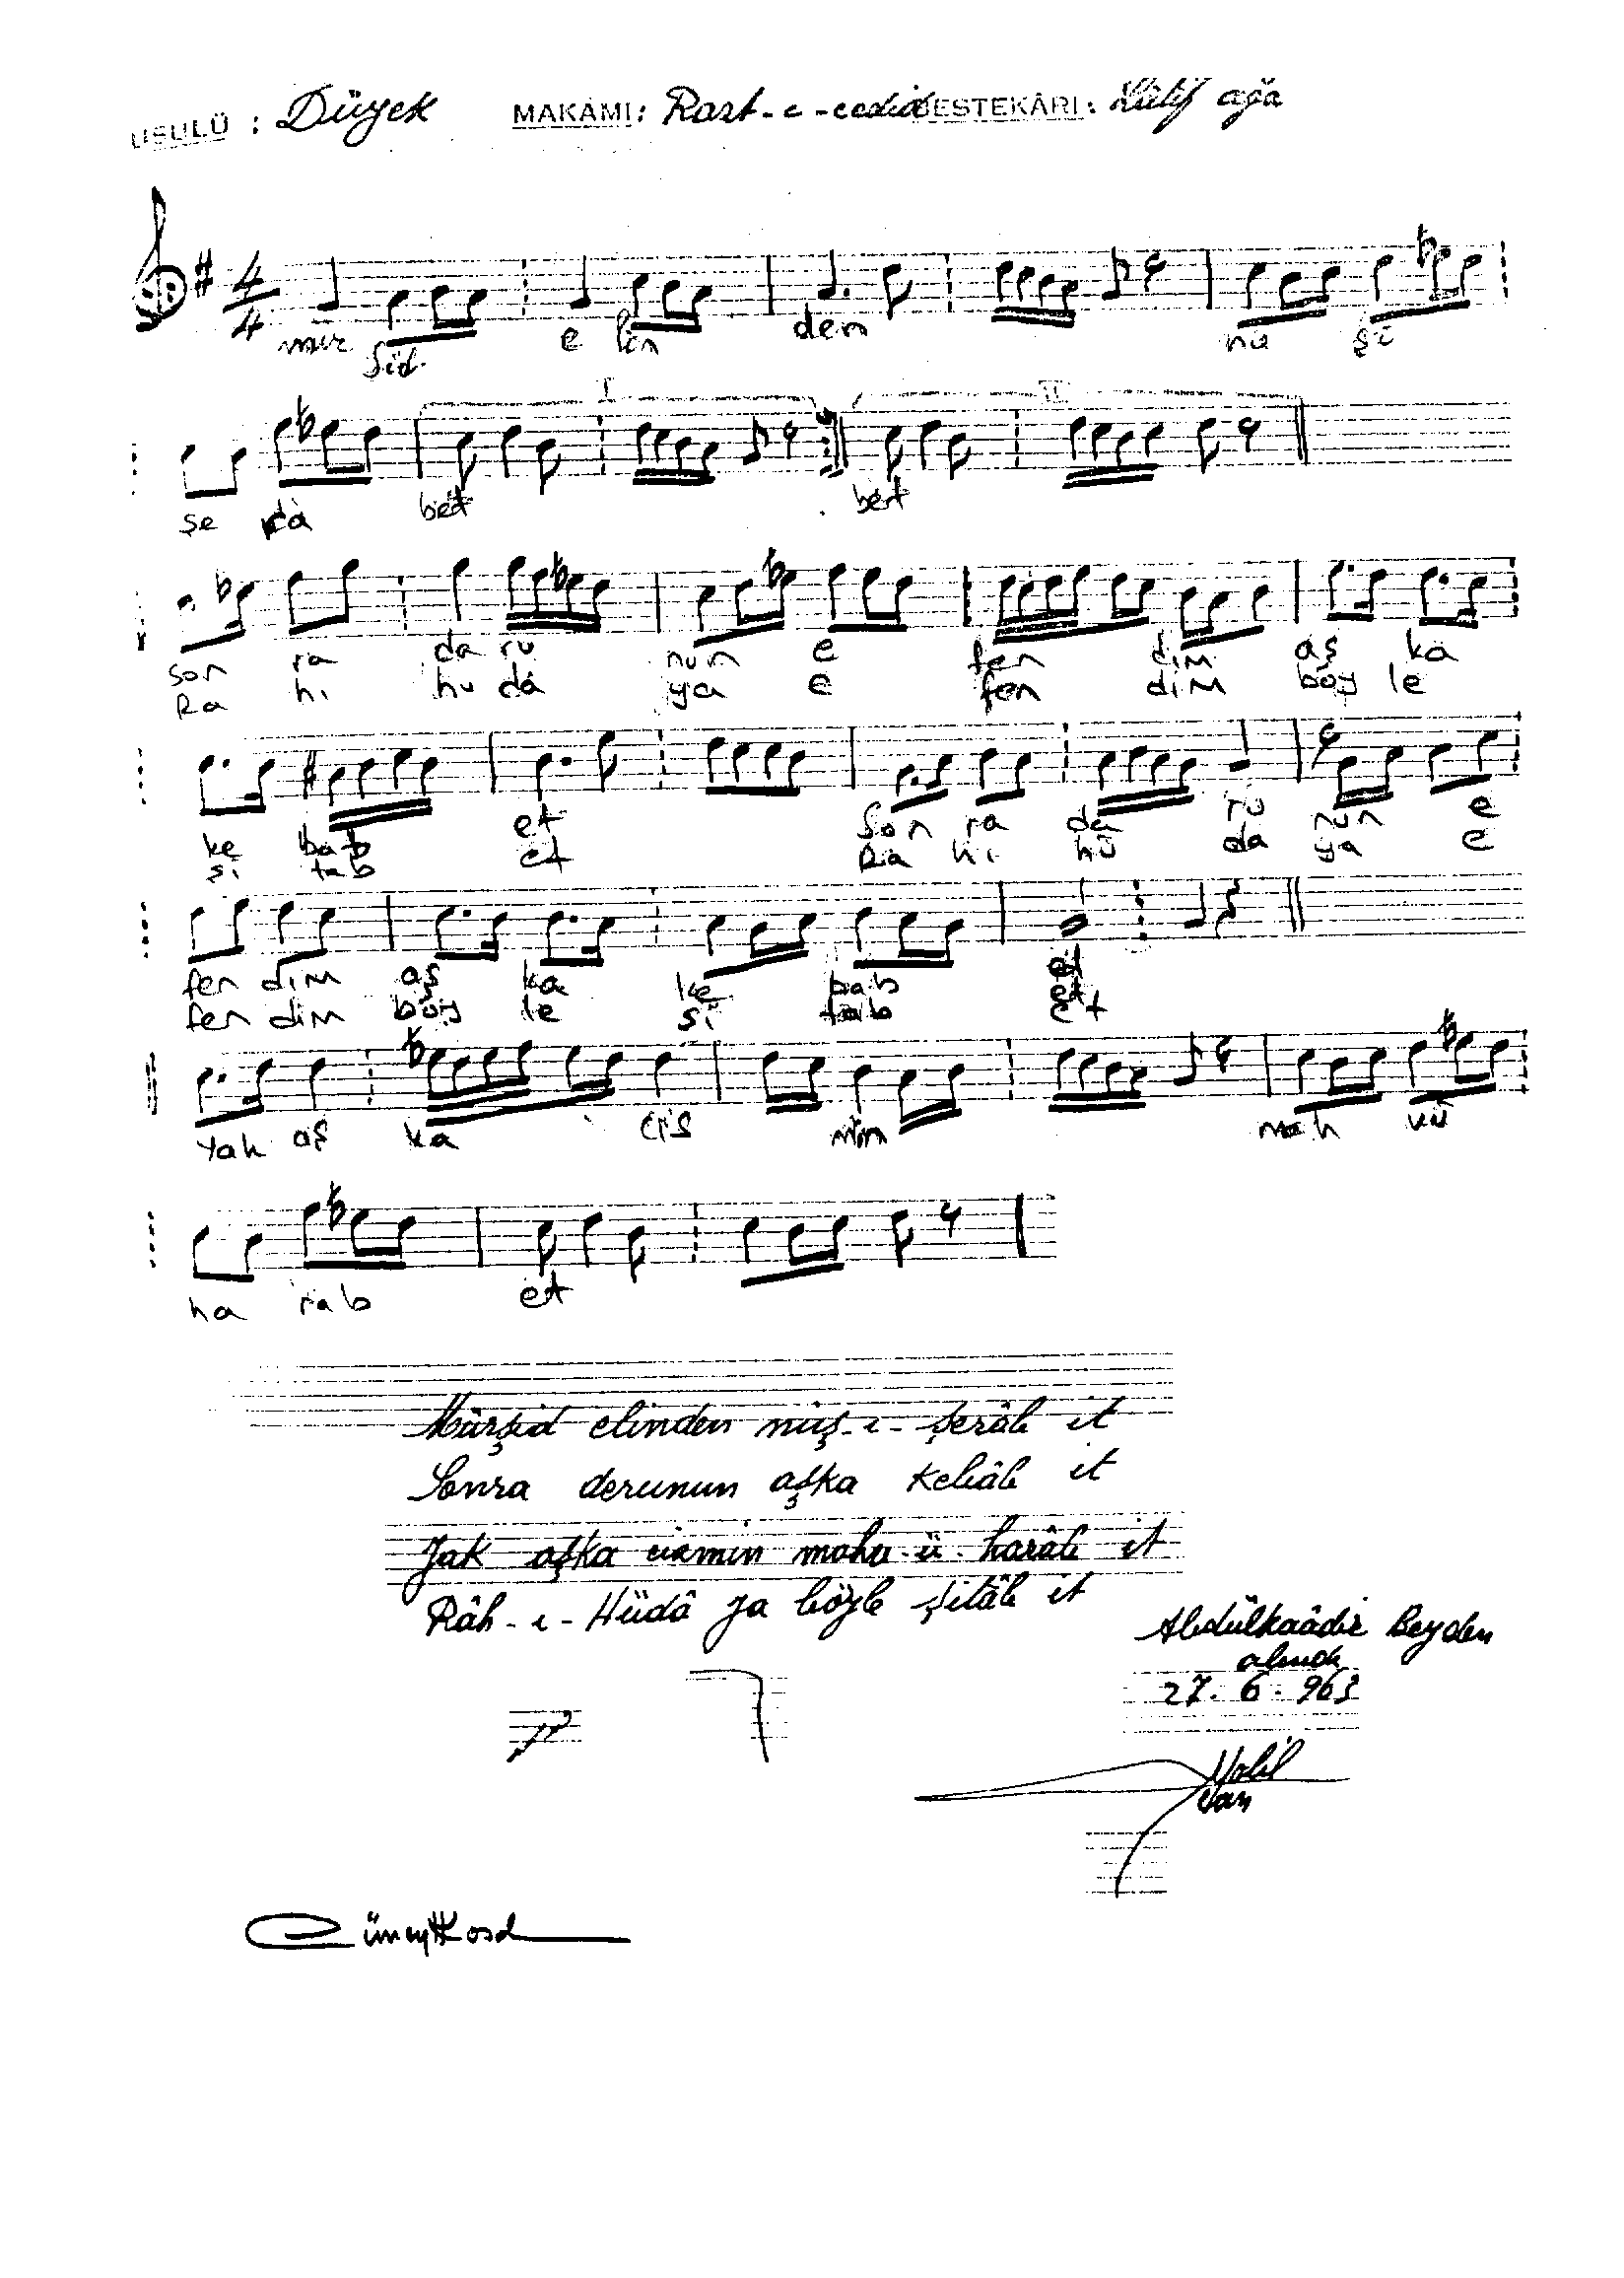 USULÜ : Düyek MAKAMI : Rast-ı-cedid BESTEKÂRI : Lâtif ağa
4/4
mür şid e lin den nu şi
I II
şe râ bet bet
son ra da ru nun e fen dim aş ka
Ra hı hu dâ ya e fen dim böy le
ke bab et son ra da ru nun e
şi tab et Ra hı hü da ya e
fen dim aş ka ke bab et
fen dim böy le şi tab et
Yah aş ka cis min mah vü
ha rab et
Mürşid elinden nûş-ı-şerâb it
Sonra derunun aşka kebâb it
Yak aşka cismin mahv-ü-harâb it
Râh-ı-Hüdâ ya böyle şitâb it
Abdülkaâdir Beyden
alındı
27.6.963
Halil
Can
Cüneyt Kosal